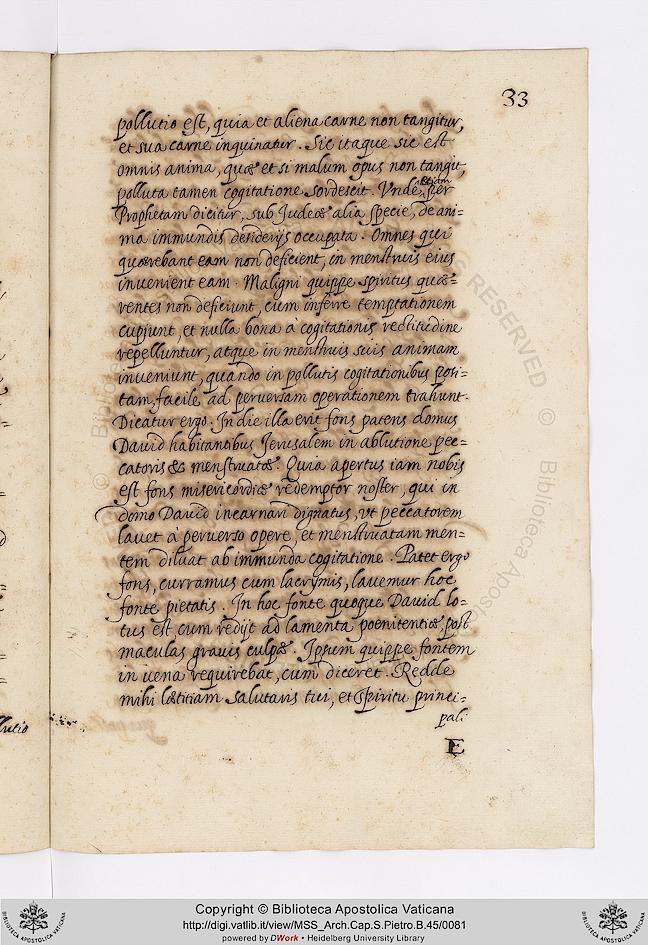 33
pollutio est, quia et aliena carne non tangitur,
et sua carne inquinatur. Sic itaque sic est
omnis anima, quæ et si malum opus non tangit,
polluta tamen cogitatione sordescit. Vnde etiam per
Prophetam dicitur, sub Judeæ alia specie, de ani=
ma immundis desiderijs occupata. Omnes qui
quærebant eam non deficient, in menstruis eius
invenient eam. Maligni quippe spiritus quæ=
rentes non deficiunt, cum inferre temptationem
cupiunt, et nulla bona à cogitationis rectitudine
repelluntur, atque in menstruis suis animam
inveniunt, quando in pollutis cogitationibus posi=
tam, facile ad perversam operationem trahunt.
Dicatur ergo. In die illa erit fons patens domus
David habitantibus Jerusalem in ablutione pec=
catoris & menstruatæ. Quia apertus iam nobis
est fons misericordiæ redemptor noster, qui in
domo David incarnari dignatus, vt peccatorem
lauet à perverso opere, et menstruatam men=
tem diluat ab immunda cogitatione. Patet ergo
fons, curramus cum lacrymis, lauemur hoc
fonte pietatis. In hoc fonte quoque David lo=
tus est cum redijt ad lamenta pœnitentiæ post
maculas grauis culpæ. Ipsum quippe fontem
in uena requirebat, cum diceret. Redde
mihi lætitiam salutaris tui, et Spiritu princi=
pali
E
llutio
© Biblioteca Apostolica
RESERVED © Biblioteca Apostolica
Copyright © Biblioteca Apostolica Vaticana
http://digi.vatlib.it/view/MSS_Arch.Cap.S.Pietro.B.45/0081
powered by DWork • Heidelberg University Library